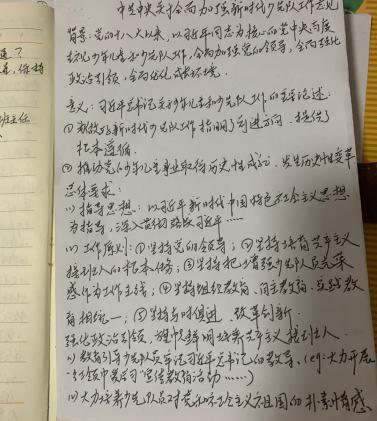 中共中央关于全面加强新时代少先队工作意见
背景：党的十八大以来，以习近平同志为核心的党中央高度
重视少年儿童和少先队工作，全面加强党的领导，全面强化
政治引领，全面优化成长环境。
意义：习近平总书记关于少年儿童和少先队工作的重要论述：
① 为做好新时代少先队工作指明了前进方向，提供了
根本遵循。
② 推动党的少年儿童事业取得历史性成就、发生历史性变革
总体要求：
(1) 指导思想：以习近平新时代中国特色社会主义思想
为指导，深入贯彻落实习近平……
(2) 工作原则：①坚持党的领导；②坚持培育共产主义
接班人的根本任务；③坚持把增强少先队员光荣
感作为工作主线；④坚持组织教育、自主教育、实践教
育相统一；⑤坚持与时俱进、改革创新。
强化政治引领，旗帜鲜明培养共产主义接班人
(1) 教育引导少先队员牢记习近平总书记的教导。(eg：大力开展
"红领巾爱学习"宣传教育活动……)
(2) 大力培养少先队员对党和社会主义祖国的朴素情感
？
班主任